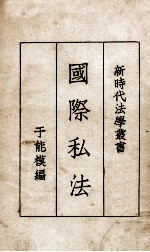 新時代法學叢書
國際私法
于能模編